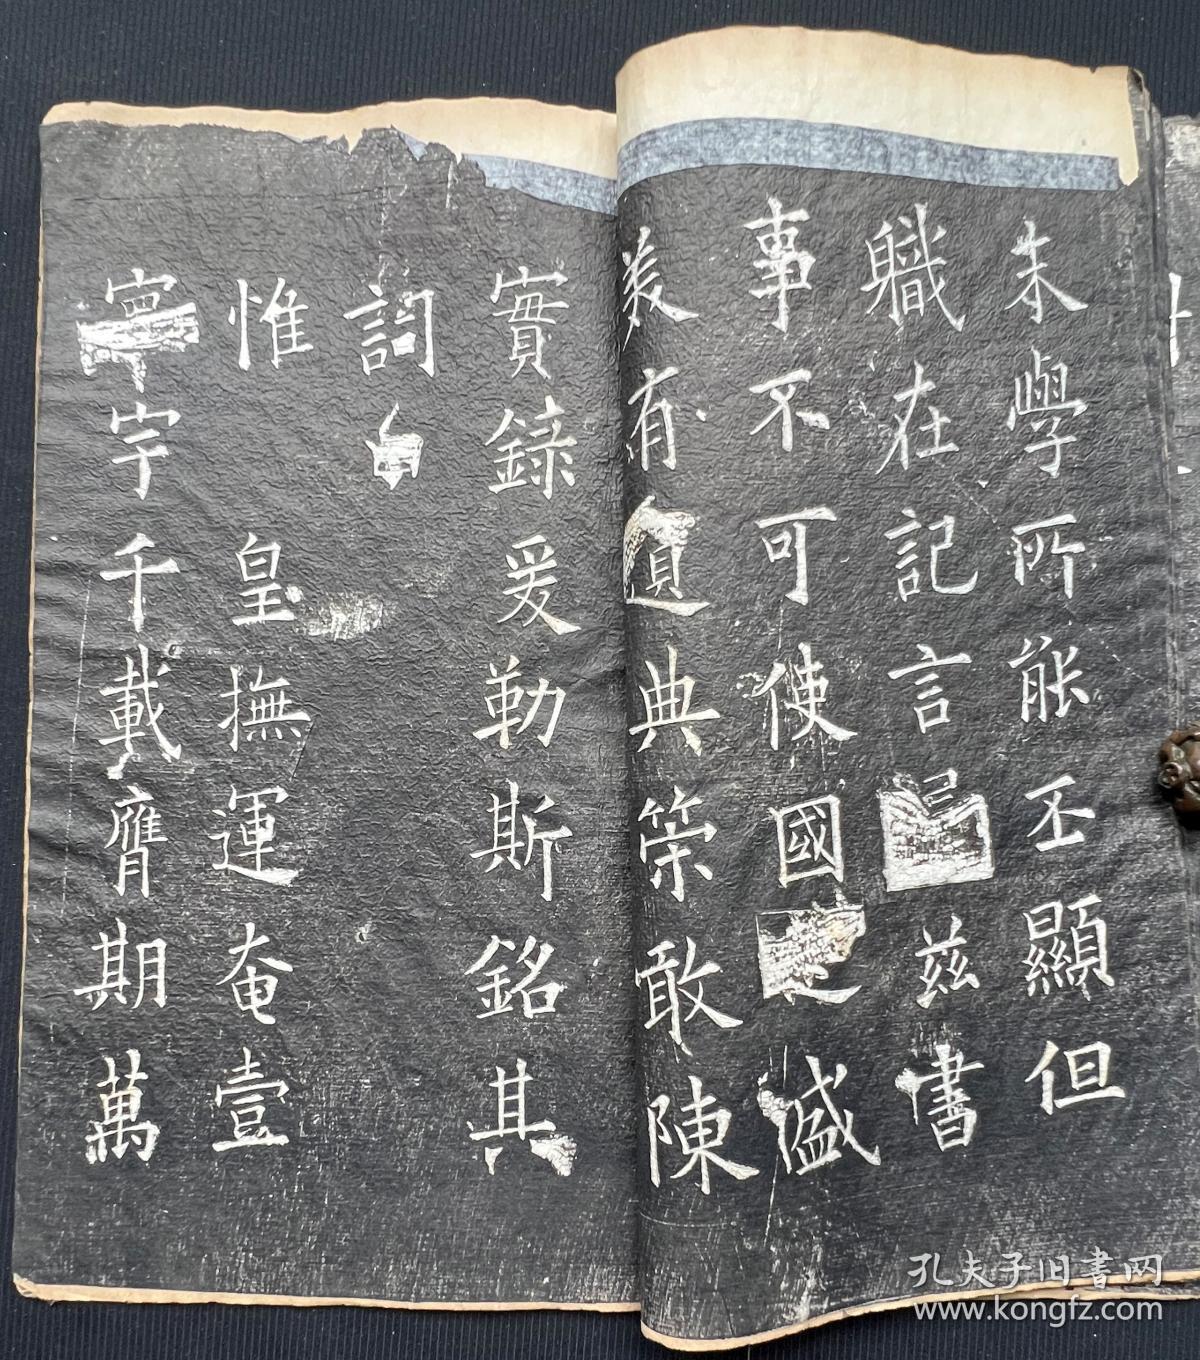 末學所能丕顯但
職在記言茲書
事不可使國之盛
美有遺典策敢陳
實錄爰勒斯銘其
詞曰
惟皇撫運奄壹
寰宇千載膺期萬
孔夫子旧書网
www.kongfz.com